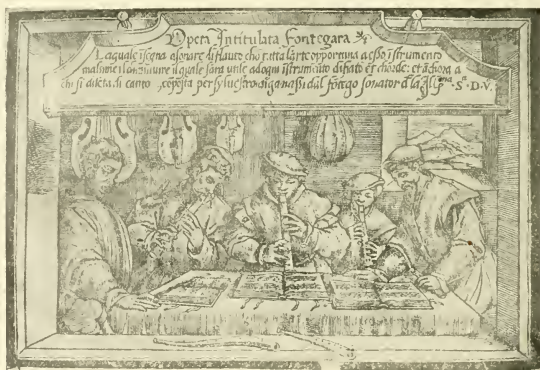 Opera Intitulata Fontegara
Laquale ĩsegna a sonare di flauto chõ tutta l'arte opportuna a esso ĩstrumento
massime il diminuire il quale sara utile ad ogni ĩstrumẽto di fiato et chorde: et ãchora a
chi si dileta di canto cõposta per Sylvestro di ganassi dal fõtego sonator d la
S D.V.